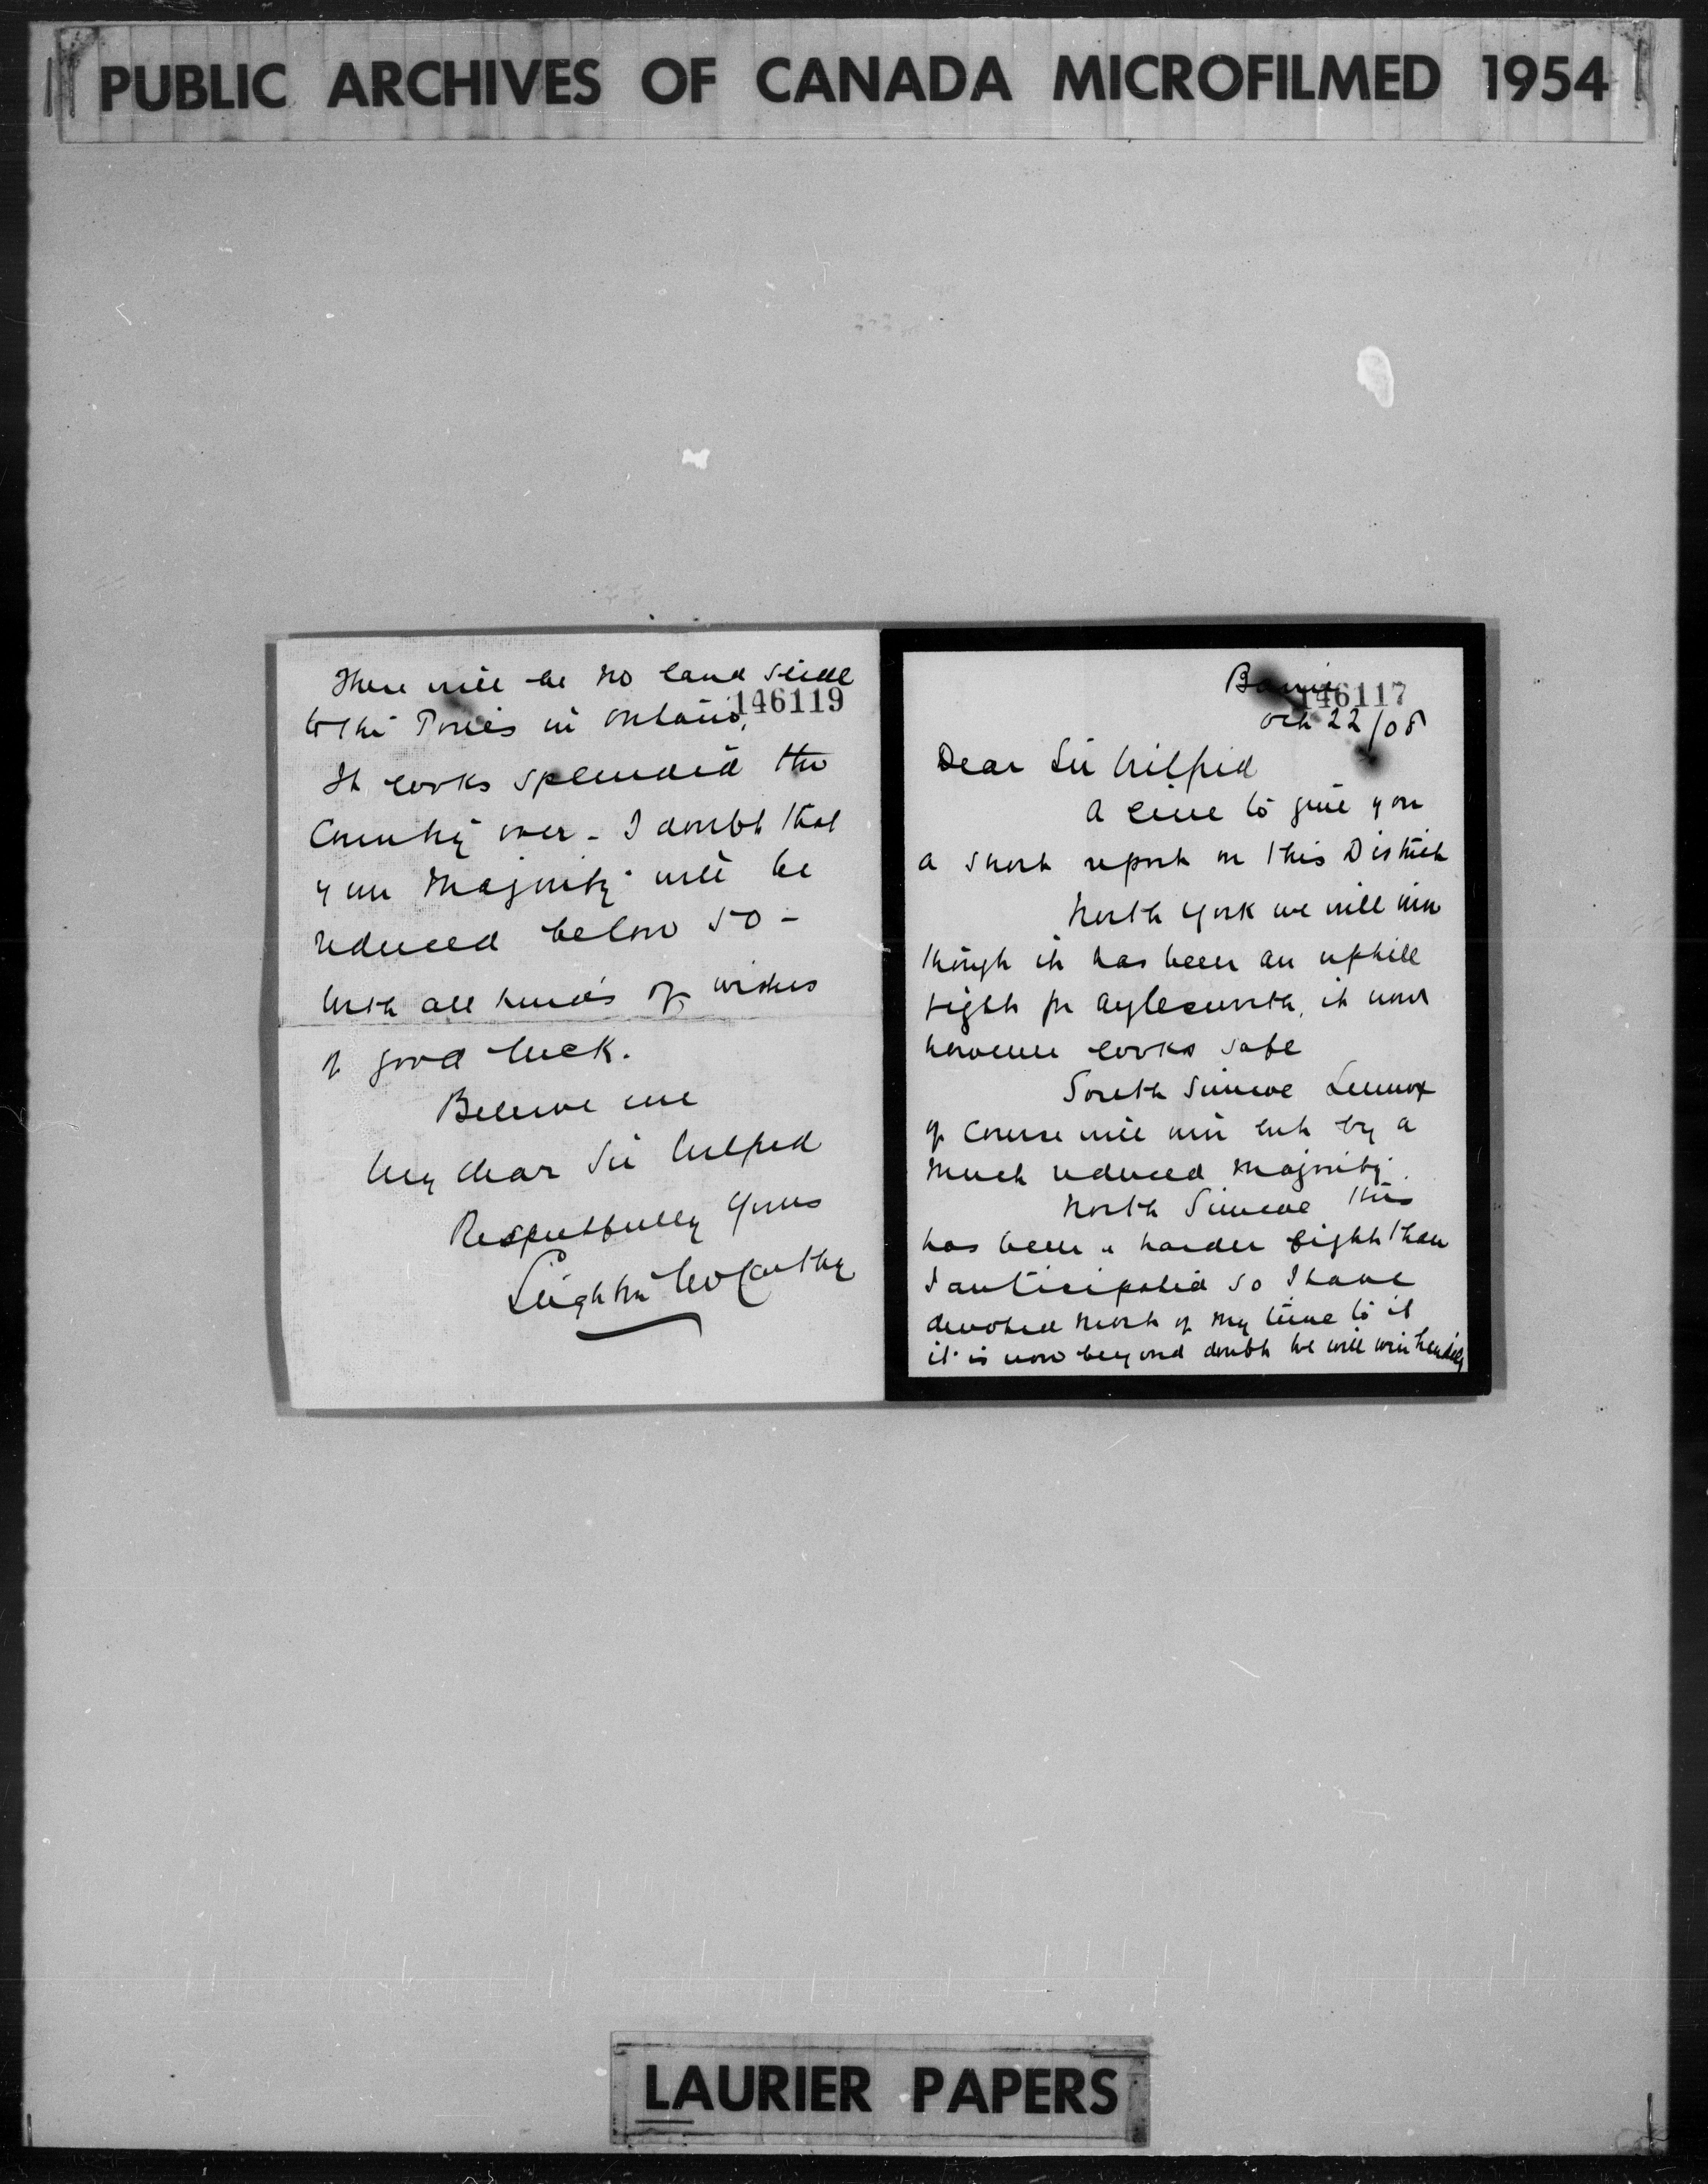 PUBLIC ARCHIVES OF CANADA MICROFILMED 1954
There will be no land slide
to the Tories in Ontario.
146119
It looks splendid the
Country over - I doubt that
your Majority will be
reduced below 50 -
With all kinds of wishes
of good luck.
Believe me
My dear Sir Wilfrid
Respectfully Yours
Leighton McCarthy
Barrie
146117
Oct 22/08
Dear Sir Wilfrid
A line to give you
a short report on this District
North York we will win
though it has been an uphill
fight for Aylesworth, it now
however looks safe
South Simcoe Lennox
of course will win but by a
much reduced majority.
North Simcoe this
has been a harder fight than
I anticipated so I have
devoted most of my time to it
it is now beyond doubt we will win handily
LAURIER PAPERS